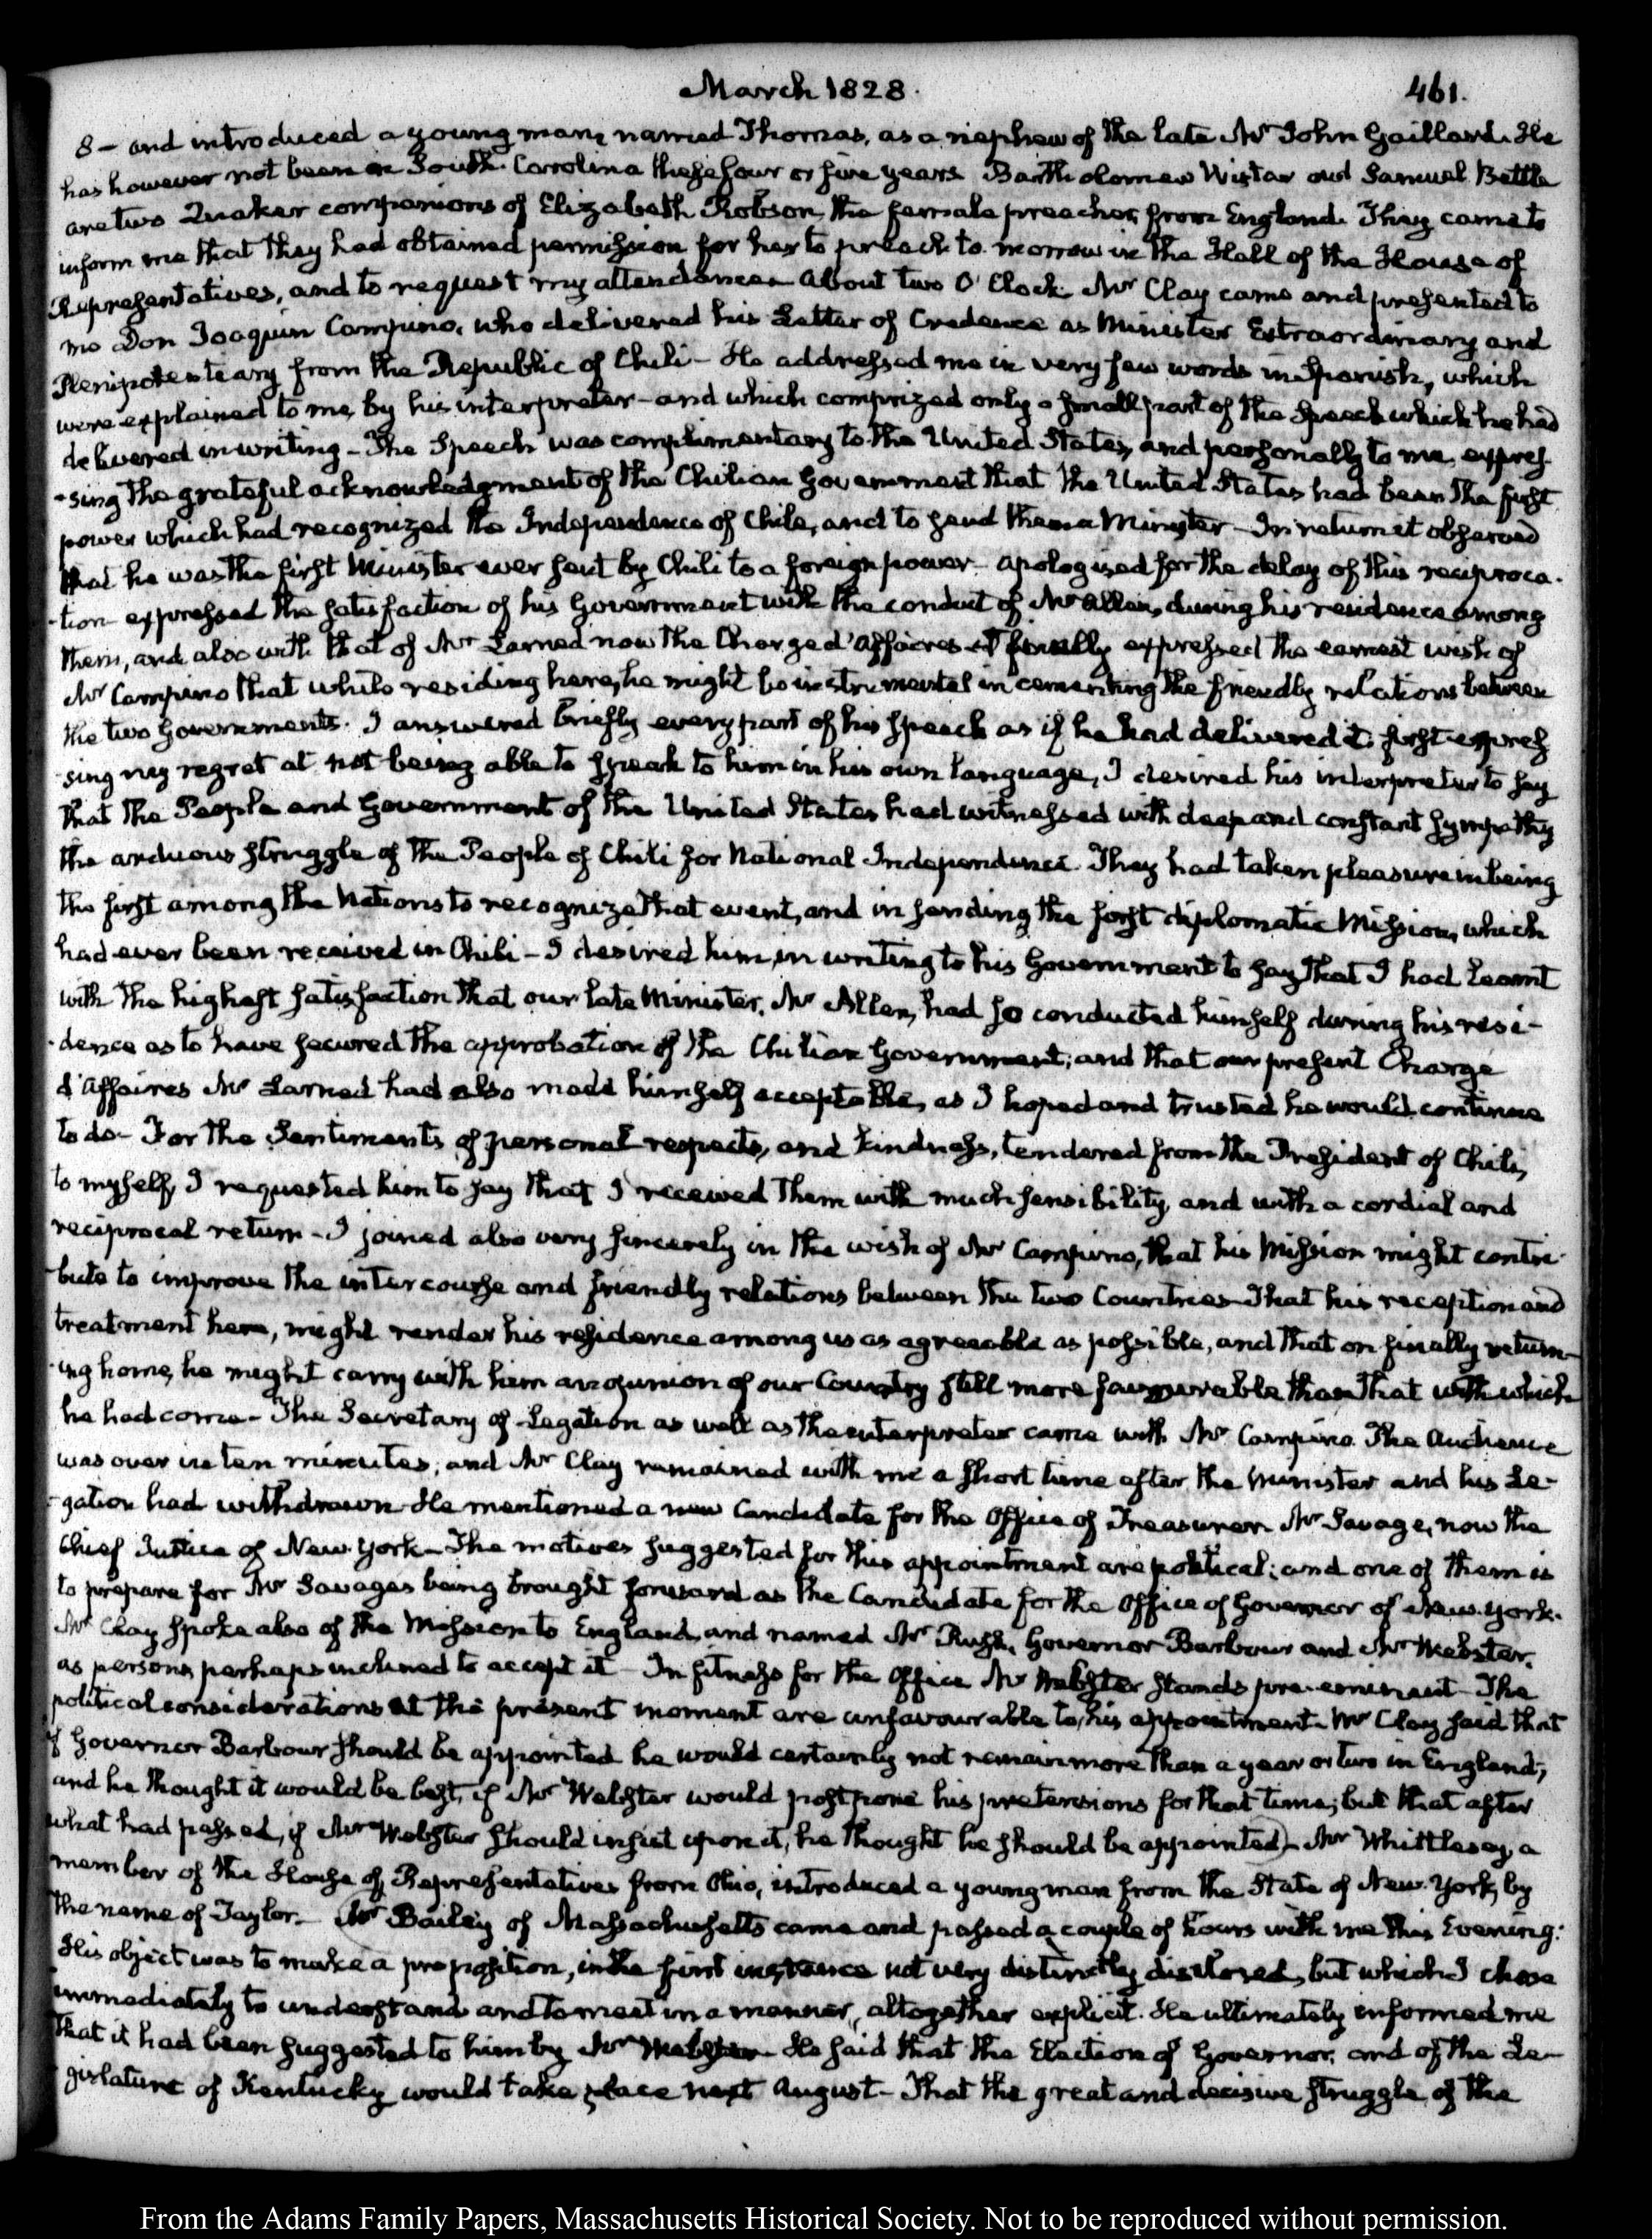 March 1828.
461.
8 – and introduced a young man, named Thomas, as a nephew of the late Mr John Gaillard. He
has however not been in South Carolina these four or five years. Bartholomew Wistar and Samuel Bettle
are two Quaker companions of Elizabeth Robson, the female preacher, from England. They came to
inform me that they had obtained permission for her to preach to-morrow in the Hall of the House of
Representatives, and to request my attendance. About two O'Clock Mr Clay came and presented to
me Don Joaquin Campino, who delivered his Letter of Credence as Minister Extraordinary and
Plenipotentiary from the Republic of Chili – He addressed me in very few words in Spanish, which
were explained to me by his interpreter – and which comprized only a small part of the Speech which he had
delivered in writing – The Speech was complimentary to the United States, and personally to me, expres-
-sing the grateful acknowledgment of the Chilian Government that the United States had been the first
power which had recognized the Independence of Chile, and to send them a Minister – In return it observed
that he was the first Minister ever sent by Chili to a foreign power – apologized for the delay of this reciproca-
-tion – expressed the satisfaction of his Government with the conduct of Mr Allen, during his residence among
them, and also with that of Mr Larned now the Charge d'Affaires – It finally expressed the earnest wish of
Mr Campino that while residing here, he might be instrumental in cementing the friendly relations between
the two Governments. I answered briefly every part of his speech as if he had delivered it. first expres
-sing my regret at not being able to speak to him in his own language, I desired his interpreter to say
that the People and Government of the United States had witnessed with deep and constant sympathy
the arduous struggle of the People of Chili for National Independence. They had taken pleasure in being
the first among the Nations to recognize that event, and in sending the first diplomatic Mission, which
had ever been received in Chili – I desired him, in writing to his Government to say that I had learnt
with the highest satisfaction that our late Minister, Mr Allen, had so conducted himself during his resi-
-dence as to have secured the approbation of the Chilian Government; and that our present Charge
d'Affaires Mr Larned had also made himself acceptable, as I hoped and trusted he would continue
to do – For the Sentiments of personal respects, and kindness, tendered from the President of Chili,
to myself, I requested him to say that I received them with much sensibility, and with a cordial and
reciprocal return – I joined also very sincerely in the wish of Mr Campino, that his Mission might contri-
-bute to improve the intercourse and friendly relations between the two Countries – That his reception and
treatment here, might render his residence among us as agreeable as possible, and that on finally return-
-ing home, he might carry with him an opinion of our Country still more favourable than that with which
he had come – The Secretary of Legation as well as the interpreter came with Mr Campino. The Audience
was over in ten minutes; and Mr Clay remained with me a short time after the Minister and his Le-
-gation had withdrawn – He mentioned a new Candidate for the Office of Treasurer Mr Savage, now the
Chief Justice of New York – The motives suggested for this appointment are political; and one of them is
to prepare for Mr Savages being brought forward as the Candidate for the Office of Governor of New-York.
Mr Clay spoke also of the Mission to England, and named Mr Rush, Governor Barbour and Mr Webster,
as persons perhaps inclined to accept it – In fitness for the Office Mr Webster stands pre-eminent – The
political considerations at the present moment are unfavourable to his appointment. Mr Clay said that
if Governor Barbour should be appointed he would certainly not remain more than a year or two in England;
and he thought it would be best, if Mr Webster would postpone his pretensions for that time; but that after
what had passed, if Mr Webster should insist upon it, he thought he should be appointed – Mr Whittlesey, a
member of the House of Representatives from Ohio, introduced a young man from the State of New-York, by
the name of Taylor – Mr Bailey of Massachusetts came and passed a couple of hours with me this Evening:
His object was to make a proposition, in the first instance not very distinctly disclosed, but which I chose
immediately to understand and to meet in a manner, altogether explicit. He ultimately informed me
that it had been suggested to him by Mr Webster – He said that the Election of Governor, and of the Le-
gislature of Kentucky would take place next August – That the great and decisive struggle of the
From the Adams Family Papers, Massachusetts Historical Society. Not to be reproduced without permission.